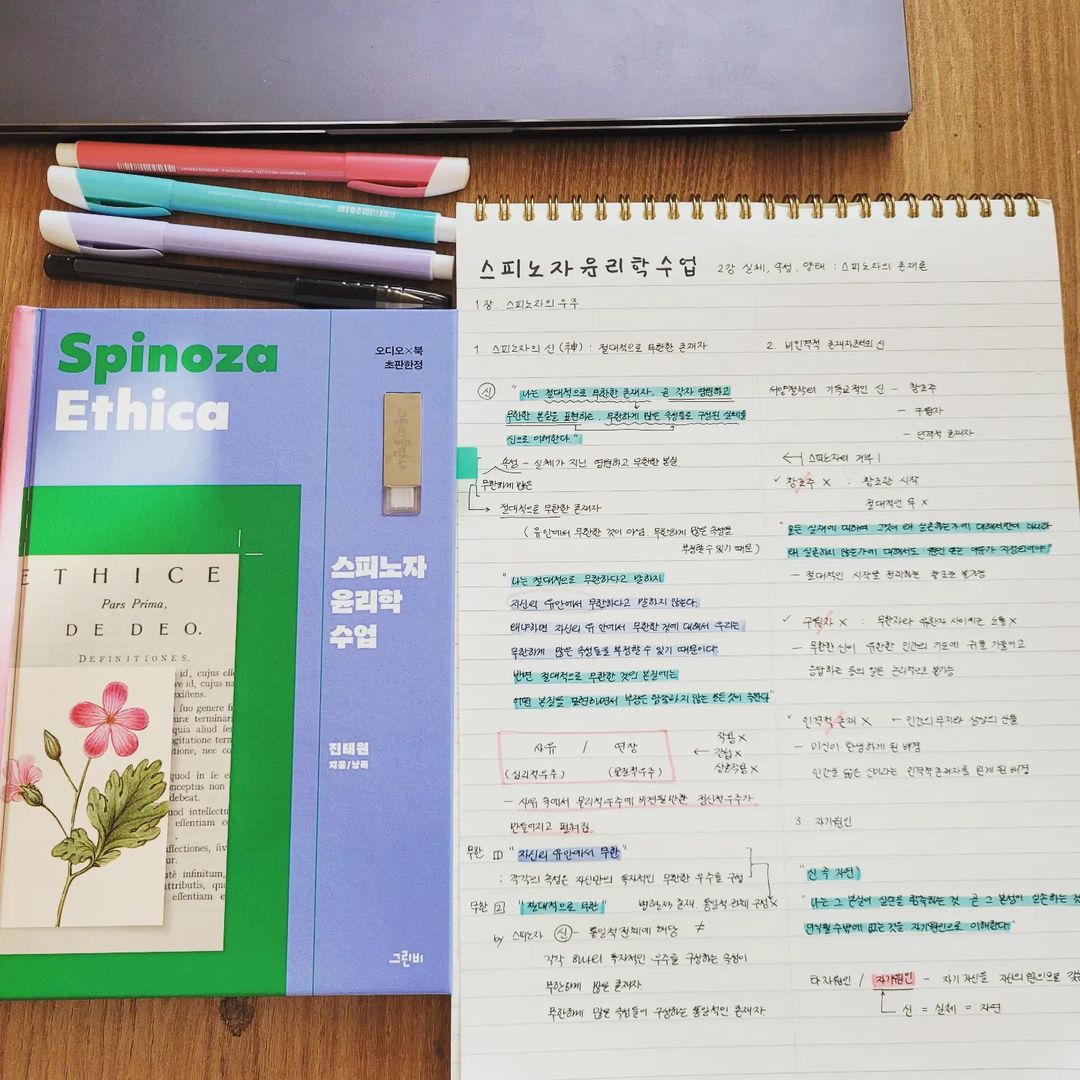 Spinoza
Ethica
오디오×북
초판한정
스피노자
윤리학
수업
진태원
지음/낭독
그린비
ETHICE
Pars Prima,
DE DEO.
DEFINITIONES.
스피노자 윤리학 수업 2강 실체, 속성, 양태 : 스피노자의 존재론
1장. 스피노자의 우주
1. 스피노자의 신(神) : 절대적으로 무한한 존재자
신 "나는 절대적으로 무한한 존재자, 곧 각자 영원하고
무한한 본질을 표현하는, 무한하게 많은 속성들로 구성된 실체를
신으로 이해한다."
속성 - 실체가 지닌 영원하고 무한한 본질
무한하게 많은
절대적으로 무한한 존재자
(유 안에서 무한한 것이 아님. 무한하게 많은 속성을
부정할 수 있기 때문)
"나는 절대적으로 무한하다고 말하지
자신의 유 안에서 무한하다고 말하지 않는다.
왜냐하면 자신의 유 안에서 무한한 것에 대해서 우리는
무한하게 많은 속성들을 부정할 수 있기 때문이다.
반면 절대적으로 무한한 것의 본질에는
어떤 본질을 표현하면서 부정을 함축하지 않는 모든 것이 속한다"
사유 / 연장
(심리적 우주) (물리적 우주)
← 작용 X
간섭 X
상호작용 X
- 사유 속에서 물리적 우주에 비견될 만한 정신적 우주가
만들어지고 펼쳐짐.
무한 1 "자신의 유 안에서 무한"
: 각각의 속성은 자신만의 독자적인 무한한 우주를 구성
무한 2 "절대적으로 무한" 병렬해서 존재, 통일적 관계 구성 X
by 스피노자 신 - 통일적 전체에 해당 ≠
각각 하나의 독자적인 우주를 구성하는 속성이
무한하게 많은 존재자
무한하게 많은 속성들이 구성하는 통일적인 존재자
2. 비인격적 존재자로서의 신
서양철학의 기독교적인 신 - 창조주
- 구원자
- 인격적 존재자
스피노자의 거부!
✓ 창조주 X : 창조란 시작
절대적인 무 X
"모든 실재에 대하여 그것이 왜 실존하는가에 대해서만이 아니라
왜 실존하지 않는가에 대해서도 원인 또는 이유가 지정되어야"
- 절대적인 시작을 전제하는 창조는 불가능
✓ 구원자 X : 무한자와 유한자 사이에는 소통 X
- 무한한 신이 유한한 인간의 기도에 귀를 기울이고
응답하는 등의 일은 논리적으로 불가능
✓ 인격적 존재 X ← 인간의 무지와 상상의 산물
- 미신이 탄생하게 된 배경
인간을 닮은 신이라는 인격적 존재자를 믿게 된 배경
3. 자기원인
"신 즉 자연"
"나는 그 본질이 실존을 함축하는 것 곧 그 본성이 실존하는
인식될 수밖에 없는 것을 자기원인으로 이해한다."
타자원인 / 자기원인 - 자기 자신을 자신의 원인으로
신 = 실체 = 자연